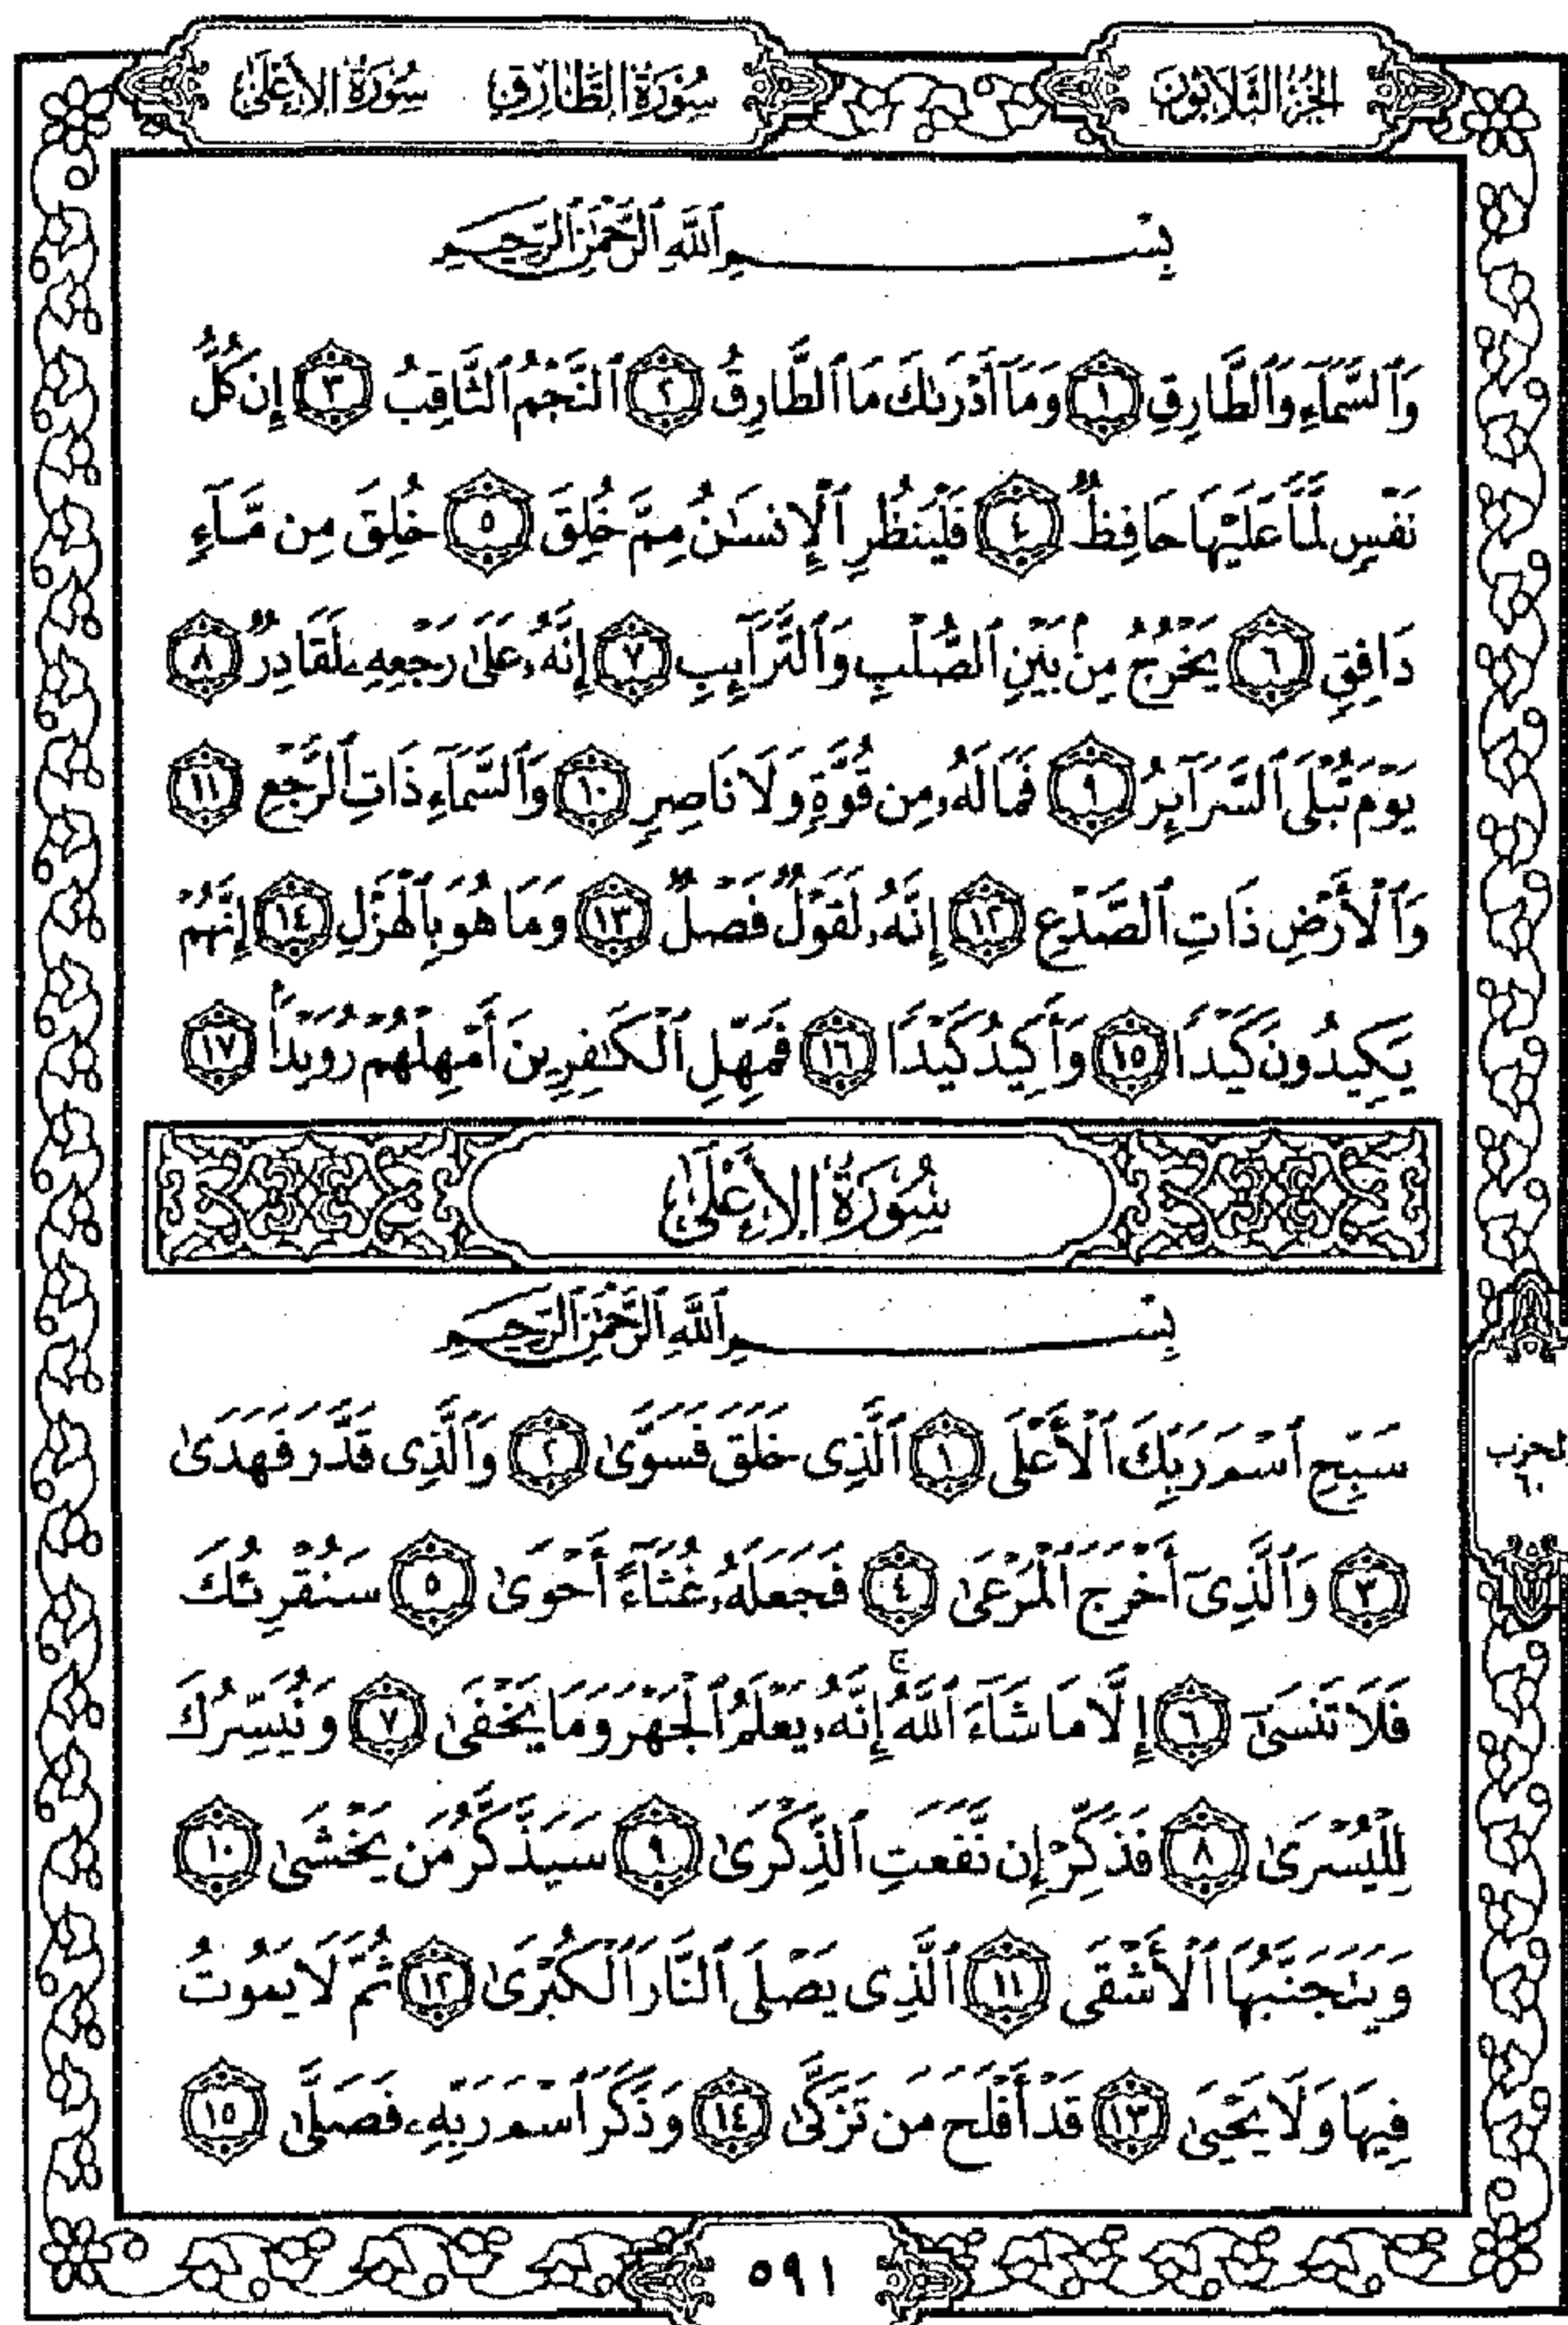 الجزء الثلاثون
سورة الطارق سورة الأعلى
بِسْمِ ٱللَّهِ ٱلرَّحْمَٰنِ ٱلرَّحِيمِ
وَٱلسَّمَآءِ وَٱلطَّارِقِ ١ وَمَآ أَدْرَىٰكَ مَا ٱلطَّارِقُ ٢ ٱلنَّجْمُ ٱلثَّاقِبُ ٣ إِن كُلُّ
نَفْسٍ لَّمَّا عَلَيْهَا حَافِظٌ ٤ فَلْيَنظُرِ ٱلْإِنسَٰنُ مِمَّ خُلِقَ ٥ خُلِقَ مِن مَّآءٍ
دَافِقٍ ٦ يَخْرُجُ مِنۢ بَيْنِ ٱلصُّلْبِ وَٱلتَّرَآئِبِ ٧ إِنَّهُۥ عَلَىٰ رَجْعِهِۦ لَقَادِرٌ ٨
يَوْمَ تُبْلَى ٱلسَّرَآئِرُ ٩ فَمَا لَهُۥ مِن قُوَّةٍ وَلَا نَاصِرٍ ١٠ وَٱلسَّمَآءِ ذَاتِ ٱلرَّجْعِ ١١
وَٱلْأَرْضِ ذَاتِ ٱلصَّدْعِ ١٢ إِنَّهُۥ لَقَوْلٌ فَصْلٌ ١٣ وَمَا هُوَ بِٱلْهَزْلِ ١٤ إِنَّهُمْ
يَكِيدُونَ كَيْدًا ١٥ وَأَكِيدُ كَيْدًا ١٦ فَمَهِّلِ ٱلْكَٰفِرِينَ أَمْهِلْهُمْ رُوَيْدًۢا ١٧
سُورَةُ الأَعْلَىٰ
بِسْمِ ٱللَّهِ ٱلرَّحْمَٰنِ ٱلرَّحِيمِ
سَبِّحِ ٱسْمَ رَبِّكَ ٱلْأَعْلَى ١ ٱلَّذِى خَلَقَ فَسَوَّىٰ ٢ وَٱلَّذِى قَدَّرَ فَهَدَىٰ
٣ وَٱلَّذِىٓ أَخْرَجَ ٱلْمَرْعَىٰ ٤ فَجَعَلَهُۥ غُثَآءً أَحْوَىٰ ٥ سَنُقْرِئُكَ
فَلَا تَنسَىٰٓ ٦ إِلَّا مَا شَآءَ ٱللَّهُ ۚ إِنَّهُۥ يَعْلَمُ ٱلْجَهْرَ وَمَا يَخْفَىٰ ٧ وَنُيَسِّرُكَ
لِلْيُسْرَىٰ ٨ فَذَكِّرْ إِن نَّفَعَتِ ٱلذِّكْرَىٰ ٩ سَيَذَّكَّرُ مَن يَخْشَىٰ ١٠
وَيَتَجَنَّبُهَا ٱلْأَشْقَى ١١ ٱلَّذِى يَصْلَى ٱلنَّارَ ٱلْكُبْرَىٰ ١٢ ثُمَّ لَا يَمُوتُ
فِيهَا وَلَا يَحْيَىٰ ١٣ قَدْ أَفْلَحَ مَن تَزَكَّىٰ ١٤ وَذَكَرَ ٱسْمَ رَبِّهِۦ فَصَلَّىٰ ١٥
الحزب
٦٠
٥٩١